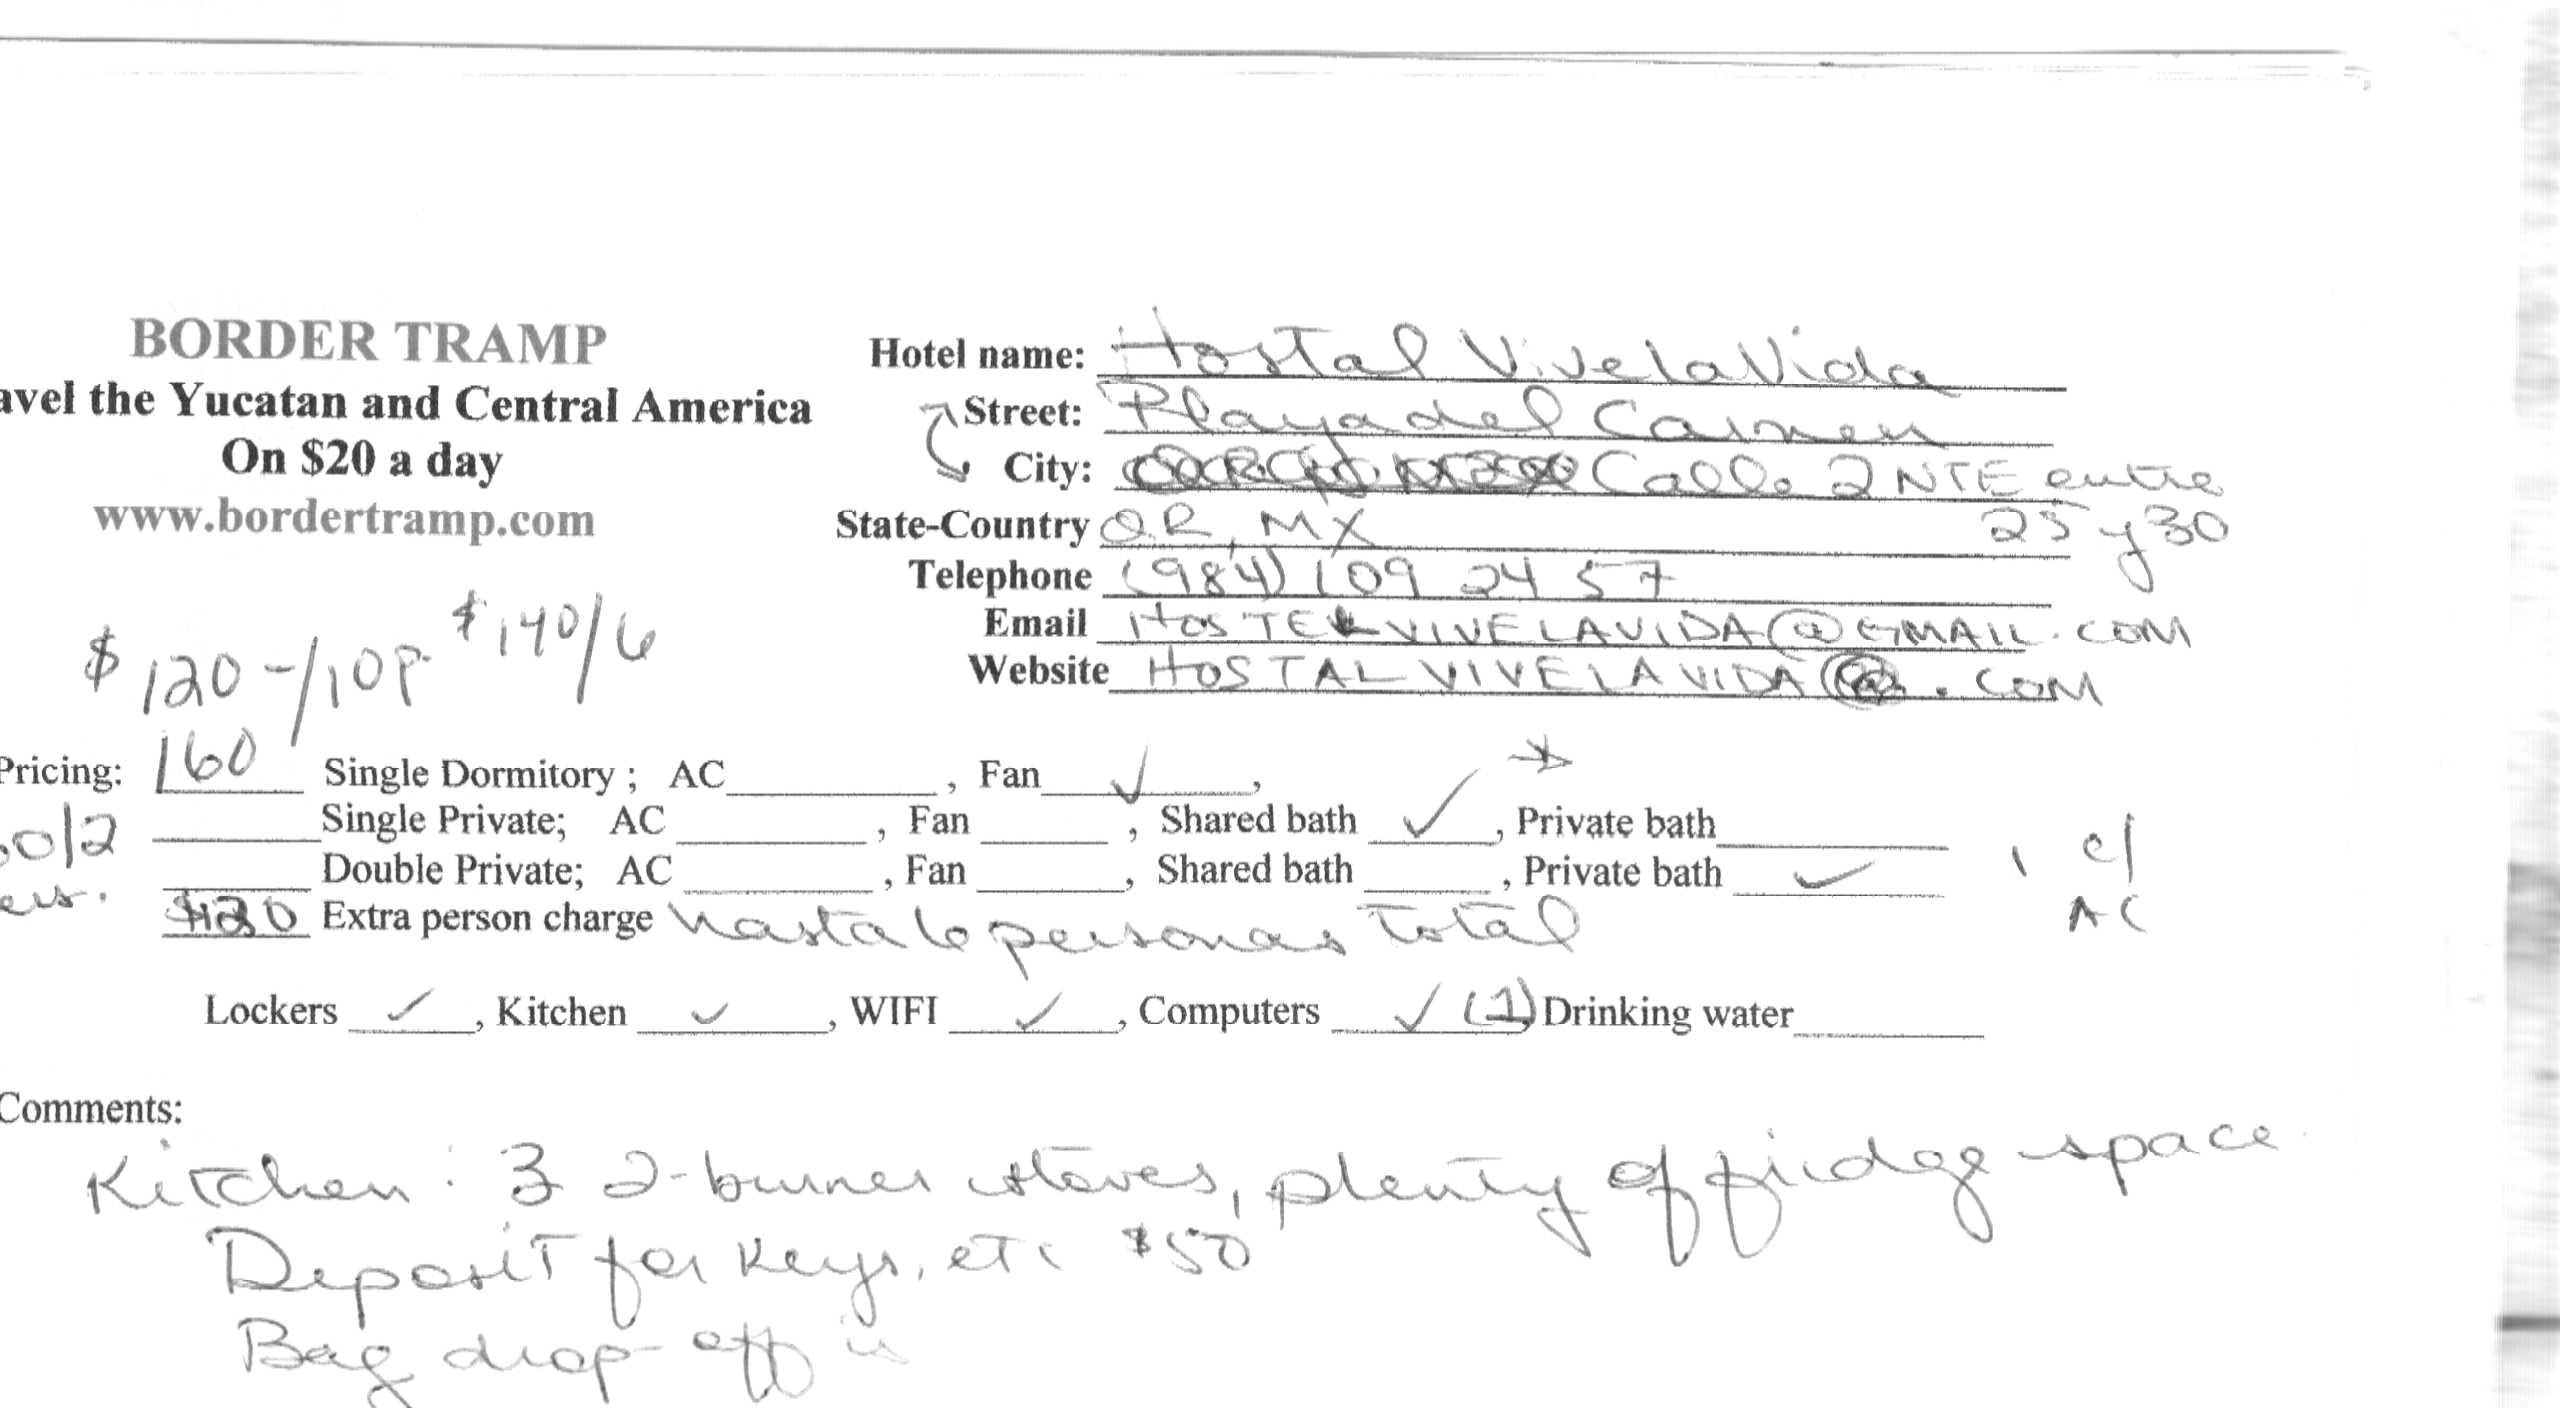 BORDER TRAMP
avel the Yucatan and Central America
On $20 a day
www.bordertramp.com
Hotel name: Hostal VivelaVida
Street: Playa del Carmen
City: Calle 2 NTE entre
25 y 30
State-Country Q.R, MX
Telephone (984) 109 24 57
Email HOSTELVIVELAVIDA@GMAIL.COM
Website HOSTALVIVELAVIDA.COM
$120-/10p. $140/6
Pricing: 160 Single Dormitory ; AC , Fan ✓ ,
0/2 Single Private; AC , Fan , Shared bath ✓ , Private bath
Double Private; AC , Fan , Shared bath , Private bath ✓ 1 c/
AC
$120 Extra person charge hasta 6 personas total
Lockers ✓ , Kitchen ✓ , WIFI ✓ , Computers ✓ (1) Drinking water
Comments:
Kitchen : 3 2-burner stoves, plenty of fridge space
Deposit for keys, etc $50
Bag drop-off is